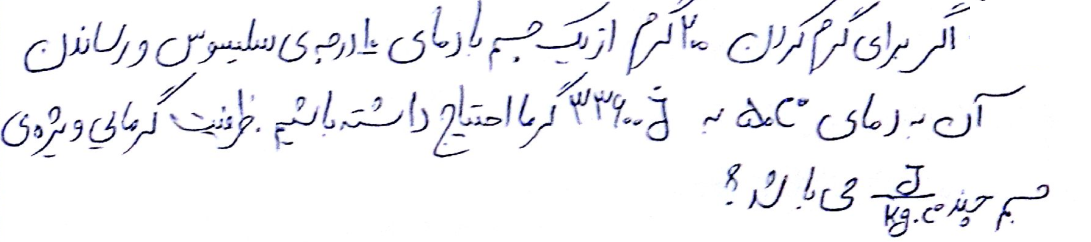 اگر برای گرم کردن ۲۰۰ گرم از یک جسم با دمای ۱۰ درجه ی سلیسوس و رساندن
آن به دمای ۵۰C° به ۳۳۶۰۰ J گرما احتیاج داشته باشیم. ظرفیت گرمایی ویژه ی
جسم چند J/kg.c° می باشد؟